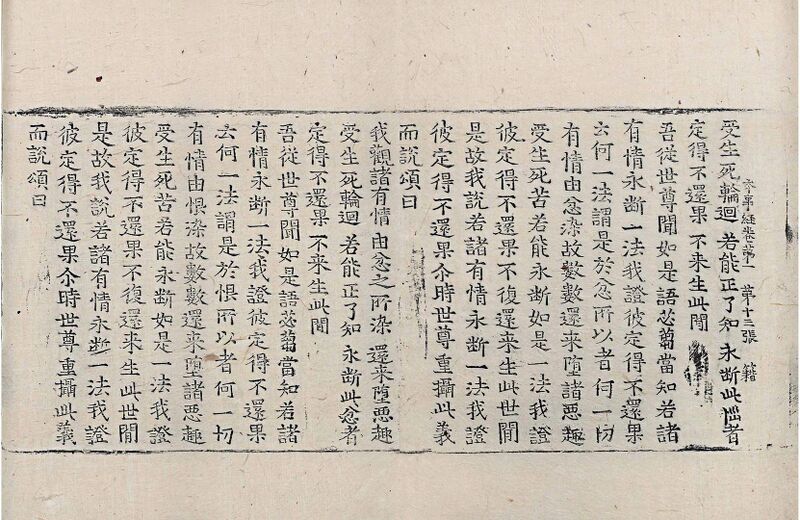 本事經卷第一 第十三張 籍
受生死輪迴 若能正了知 永斷此惱者
定得不還果 不来生此間
吾從世尊聞如是語苾蒭當知若諸
有情永斷一法我證彼定得不還果
云何一法謂是於忿所以者何一切
有情由忿染故數數還来墮諸惡趣
受生死苦若能永斷如是一法我證
彼定得不還果不復還来生此世間
是故我說若諸有情永斷一法我證
彼定得不還果尒時世尊重攝此義
而說頌曰
我觀諸有情 由忿之所染 還来墮惡趣
受生死輪迴 若能正了知 永斷此忿者
定得不還果 不来生此間
吾從世尊聞如是語苾蒭當知若諸
有情永斷一法我證彼定得不還果
云何一法謂是於恨所以者何一切
有情由恨染故數數還来墮諸惡趣
受生死苦若能永斷如是一法我證
彼定得不還果不復還来生此世間
是故我說若諸有情永斷一法我證
彼定得不還果尒時世尊重攝此義
而說頌曰